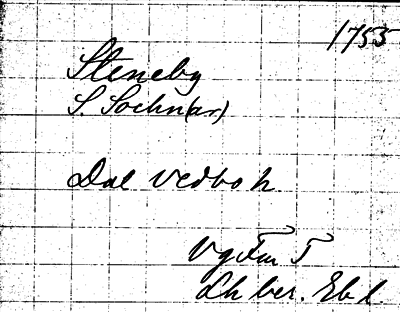 1755
Steneby
S. Sochn(ar)
Dal Vedbo h
Vg Fm T
Lh ber. Eb l.